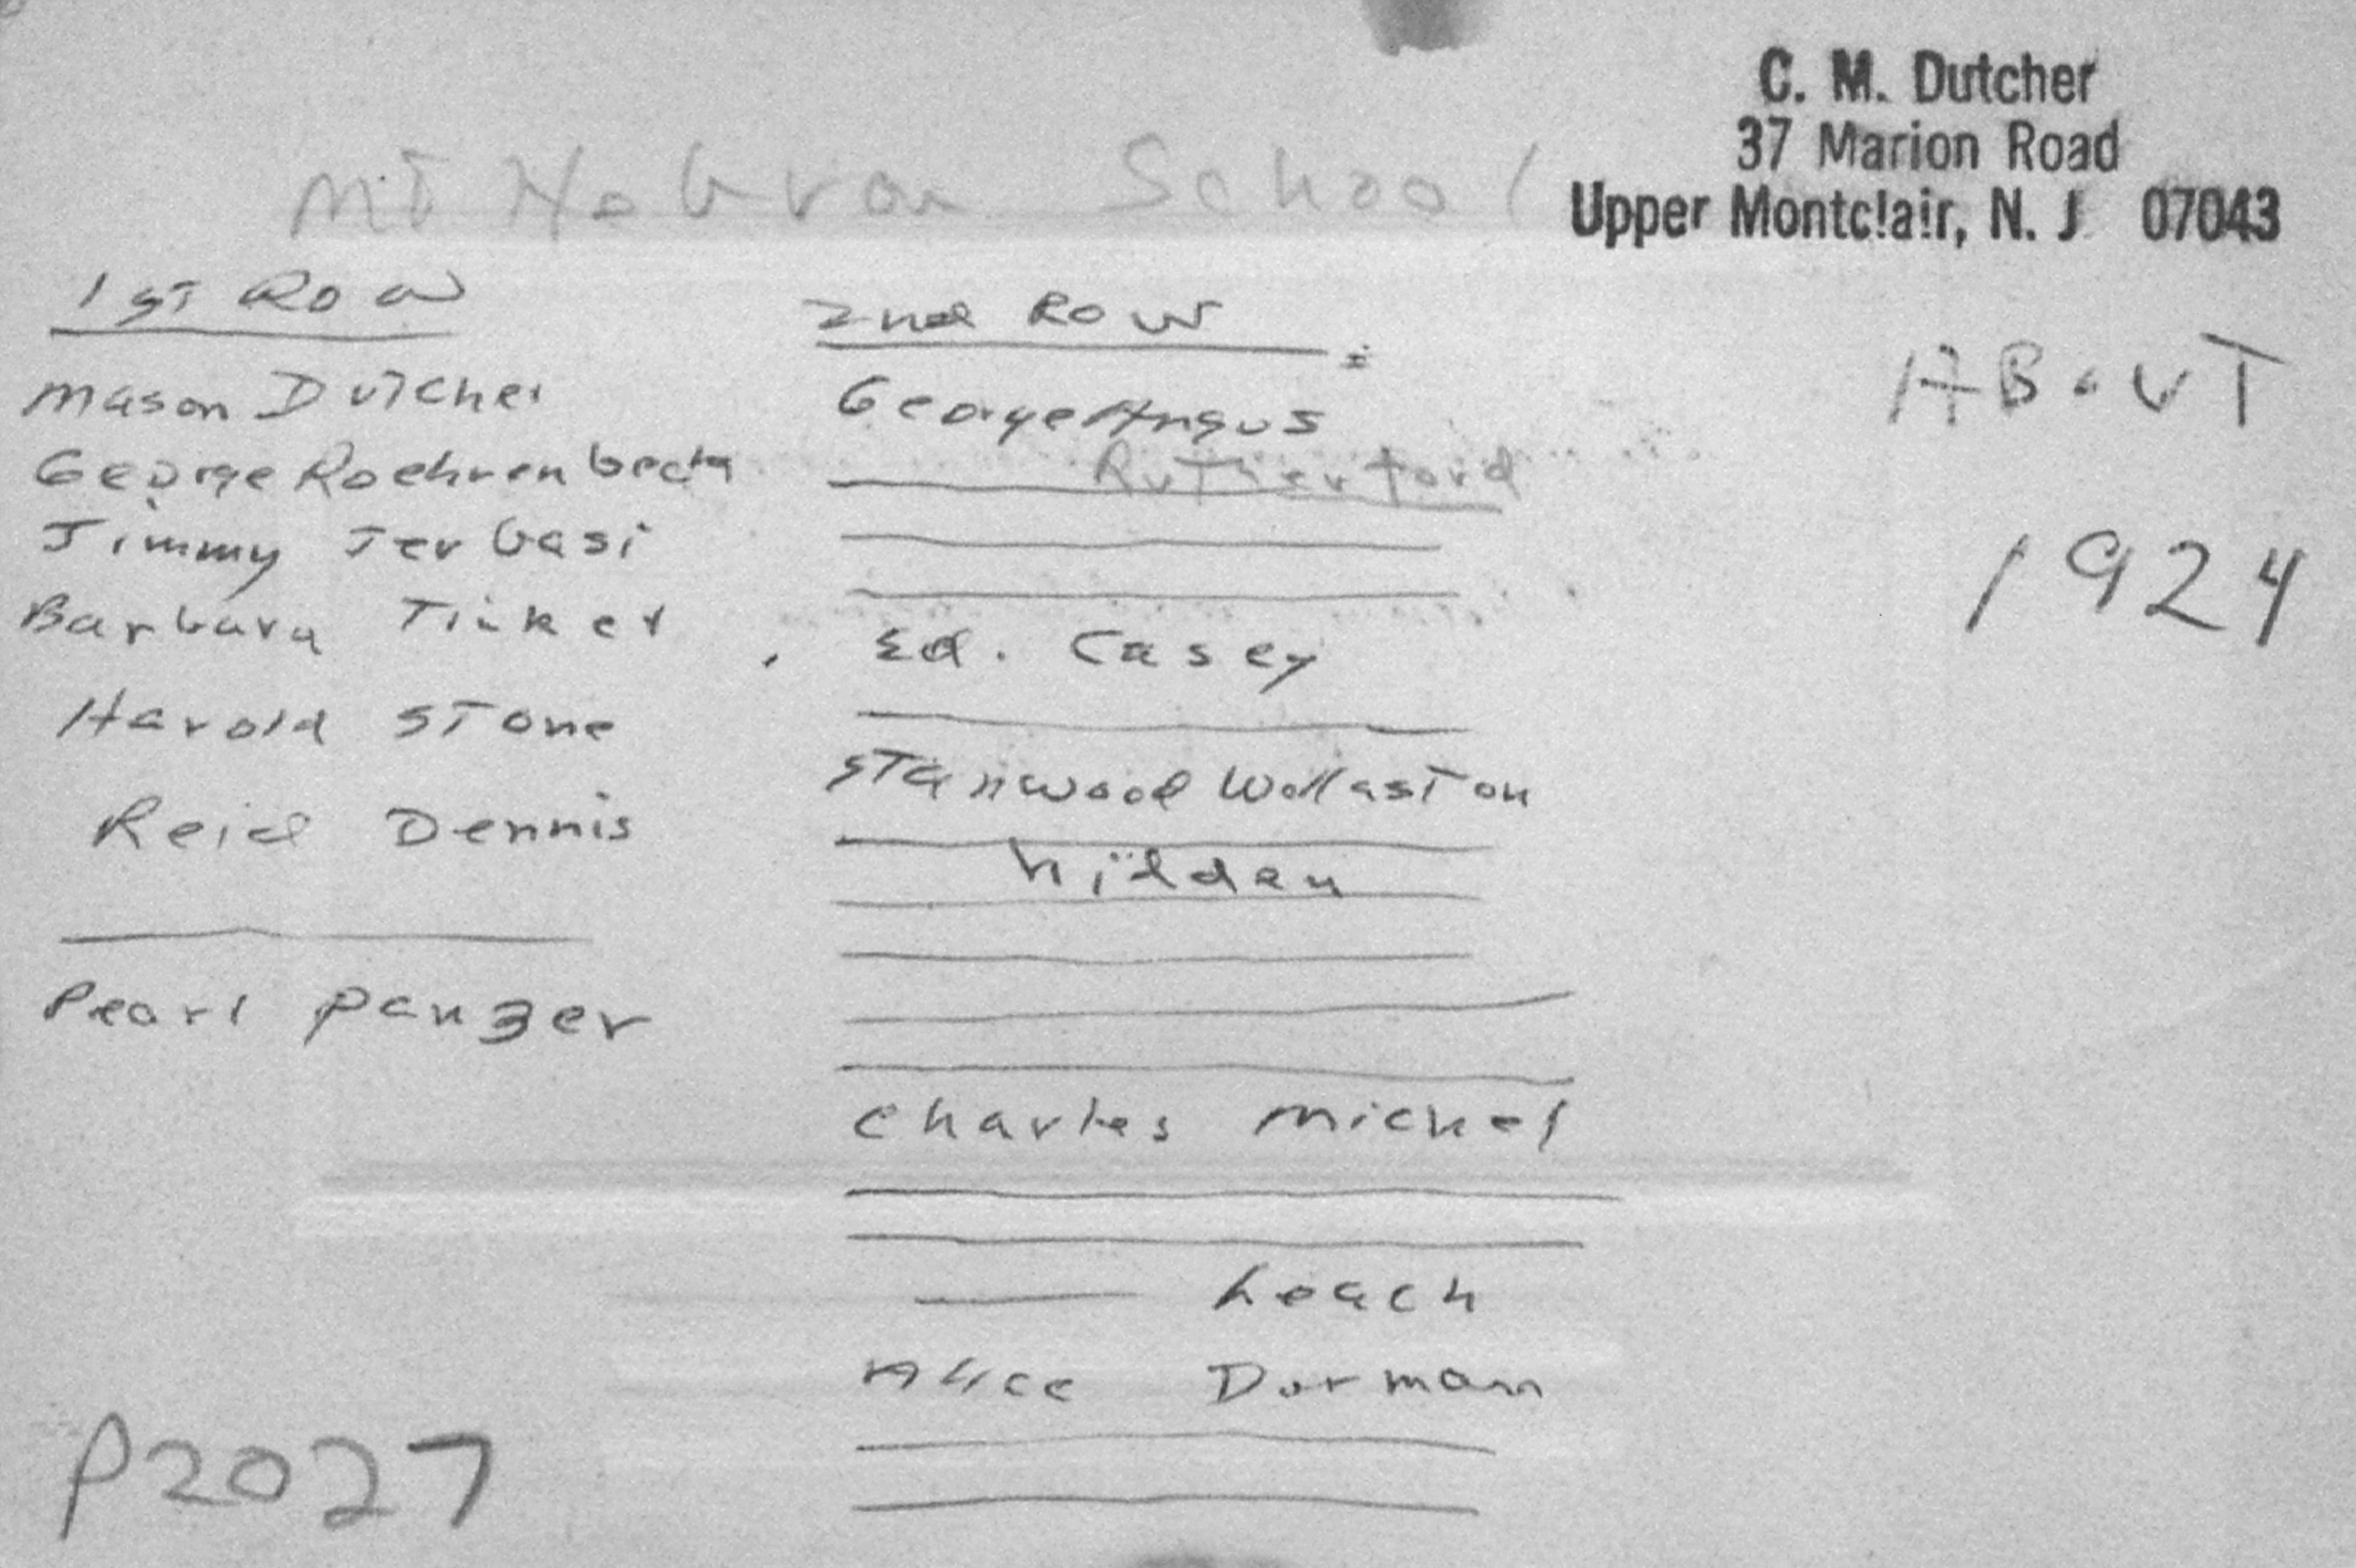 C. M. Dutcher
37 Marion Road
Upper Montclair, N. J 07043
MT Hebron School
1ST ROW
Mason Dutcher
George Roehrenbeck
Jimmy Jerbasi
Barbara Ticker
Harold Stone
Reid Dennis
Pearl Panzer
2nd ROW
George Angus
Rutherford
Ed. Casey
Stanwood Wollaston
hilden
Charles Michel
Leach
Alice Dorman
ABOUT
1924
P2027